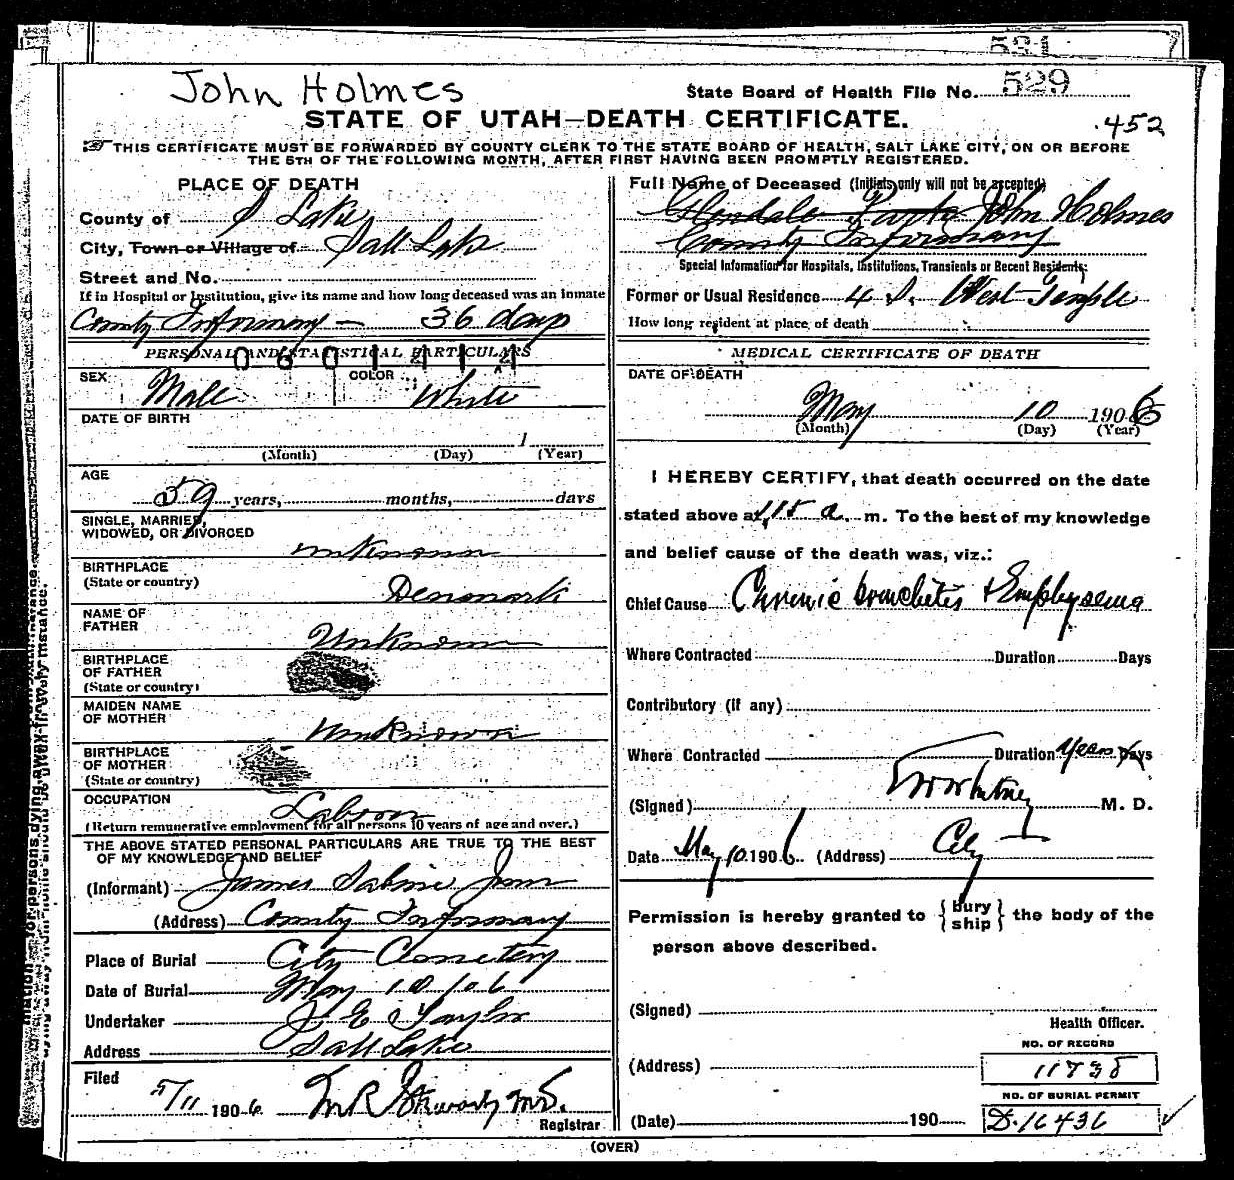 531
John Holmes
State Board of Health File No. 529
STATE OF UTAH—DEATH CERTIFICATE.
.452
THIS CERTIFICATE MUST BE FORWARDED BY COUNTY CLERK TO THE STATE BOARD OF HEALTH, SALT LAKE CITY, ON OR BEFORE
THE 5TH OF THE FOLLOWING MONTH, AFTER FIRST HAVING BEEN PROMPTLY REGISTERED.
PLACE OF DEATH
County of S Lake
City, Town or Village of Salt Lake
Street and No.
If in Hospital or Institution, give its name and how long deceased was an inmate
County Infirmary — 36 days
PERSONAL AND STATISTICAL PARTICULARS
0601414
SEX Male COLOR White
DATE OF BIRTH
1
(Month) (Day) (Year)
AGE
59 years, months, days
SINGLE, MARRIED,
WIDOWED, OR DIVORCED
unknown
BIRTHPLACE
(State or country) Denmark
NAME OF
FATHER Unknown
BIRTHPLACE
OF FATHER
(State or country)
MAIDEN NAME
OF MOTHER Unknown
BIRTHPLACE
OF MOTHER
(State or country)
OCCUPATION Labor
(Return remunerative employment for all persons 10 years of age and over.)
THE ABOVE STATED PERSONAL PARTICULARS ARE TRUE TO THE BEST
OF MY KNOWLEDGE AND BELIEF
(Informant) James Sabine
(Address) County Infirmary
Place of Burial City Cemetery
Date of Burial May 10/06
Undertaker J E Taylor
Address Salt Lake
Filed
5/11 1906
Registrar
Full Name of Deceased (Initials only will not be accepted)
Glendale Park John Holmes
County Infirmary
Special Information for Hospitals, Institutions, Transients or Recent Residents:
Former or Usual Residence 4 S. West Temple
How long resident at place of death
MEDICAL CERTIFICATE OF DEATH
DATE OF DEATH
May 10 1906
(Month) (Day) (Year)
I HEREBY CERTIFY, that death occurred on the date
stated above at 1,15 a. m. To the best of my knowledge
and belief cause of the death was, viz.:
Chief Cause Chronic bronchitis + Emphysema
Where Contracted Duration Days
Contributory (if any)
Where Contracted Duration years Days
(Signed) Whitney M. D.
Date May 10 1906 (Address) City
Permission is hereby granted to { bury ship } the body of the
person above described.
(Signed)
Health Officer.
NO. OF RECORD
(Address) 11738
NO. OF BURIAL PERMIT
(Date) 190 D.16436
(OVER)